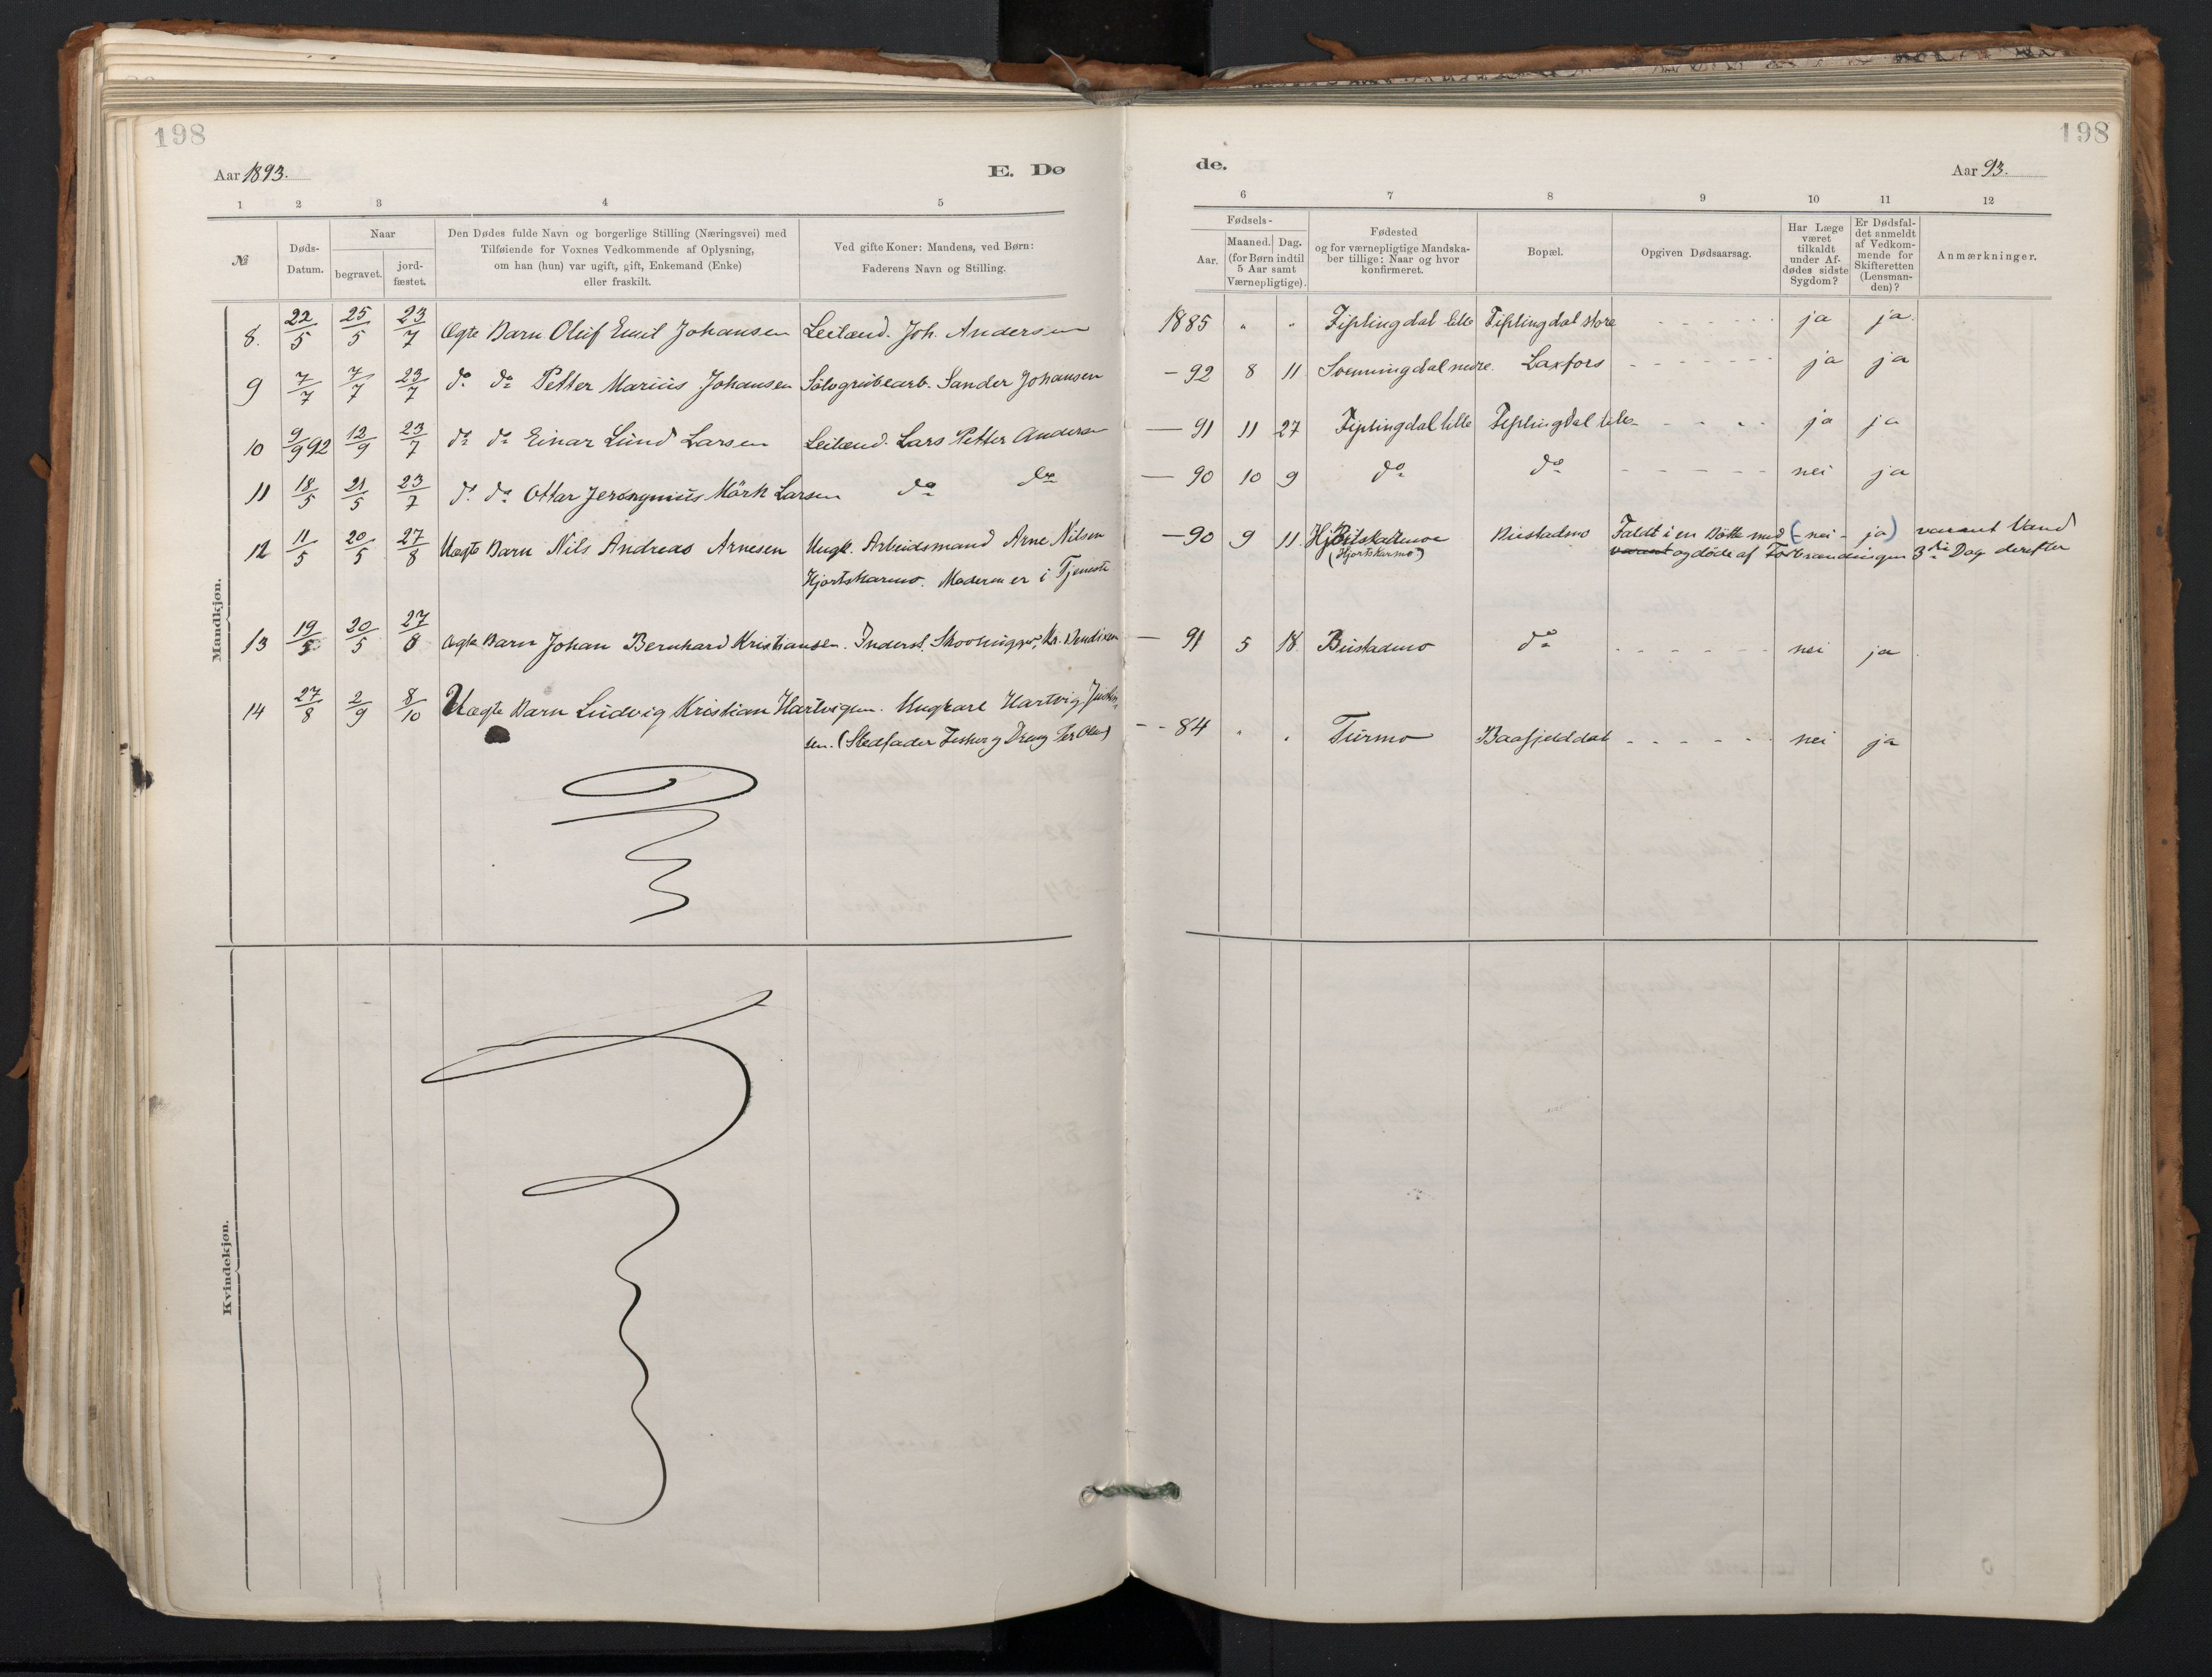 198
198
Aar 1893.
E. Dø
de.
Aar 93.
1 2 3 4 5
6 7 8 9 10 11 12
№
Døds-
Datum.
Naar
begravet.
jord-
fæstet.
Den Dødes fulde Navn og borgerlige Stilling (Næringsvei) med
Tilføiende for Voxnes Vedkommende af Oplysning,
om han (hun) var ugift, gift, Enkemand (Enke)
eller fraskilt.
Ved gifte Koner: Mandens, ved Børn:
Faderens Navn og Stilling.
Fødsels-
Aar.
Maaned. Dag.
(for Børn indtil
5 Aar samt
Værnepligtige).
Fødested
og for værnepligtige Mandska-
ber tillige: Naar og hvor
konfirmeret.
Bopæl.
Opgiven Dødsaarsag.
Har Læge
været
tilkaldt
under Af-
dødes sidste
Sygdom?
Er Dødsfal-
det anmeldt
af Vedkom-
mende for
Skifteretten
(Lensman-
den)?
Anmærkninger.
Mandkjøn.
8. 22/5 25/5 23/7 Ægte Barn Oluf Emil Johansen Leilænd. Joh. Andersen 1885 " " Fiplingdal lille Fiplingdal store - - - - - ja ja.
9 7/7 7/7 23/7 do do Petter Marius Johansen Sølvgrubearb. Sander Johansen - 92 8 11 Svenningdal nedre. Laxfors - - - - - ja ja
10 9/9 92 12/9 23/7 do do Einar Lund Larsen Leilænd. Lars Petter Andersen — 91 11 27 Fiplingdal lille Fiplingdal lille - - - - ja ja
11 18/5 21/5 23/7 do do Ottar Jeronymus Mørk Larsen do do — 90 10 9 do do - - - - - nei ja
12 11/5 20/5 27/8 Uægte Barn Nils Andreas Arnesen Ungk. Arbeidsmand Arne Nilsen — 90 9 11. Bustadmo Faldt i en Bøtte med (- nei - ja) varmt Vand
Hjortskarmo. Moderen er i Tjeneste (Hjortskarmo) varmt og døde af Forbrændingen 3die Dag derefter
13 19/5 20/5 27/8 Ægte Barn Johan Bernhard Kristiansen. Inderst, Kr. Bendixen — 91 5 18. Bustadmo do - - - - - - nei ja
14 27/8 2/9 8/10 Uægte Barn Ludvig Kristian Hartvigsen. Ungkarl Hartvig
sen. (Stedfader Per Olsen) - - 84 " " Turmo Baafjelddal - - - - - nei ja
Kvindekjøn.